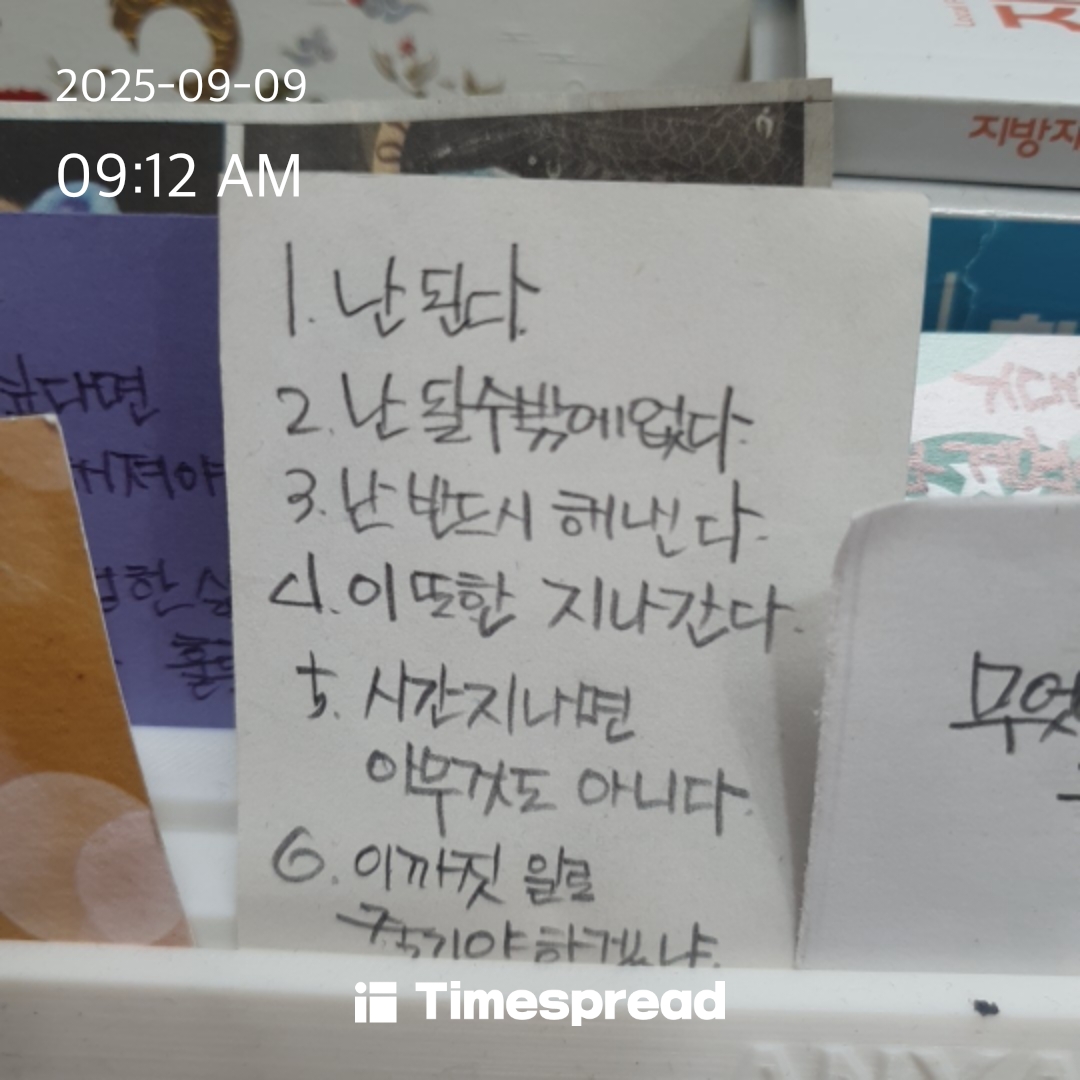 2025-09-09
09:12 AM
1. 난 된다.
2. 난 될수밖에없다.
3. 난 반드시 해낸다.
4. 이또한 지나간다.
5. 시간지나면
아무것도 아니다.
6. 이까짓 일로
죽기야하겠냐.
다면
져야
한
무엇
지방자
Timespread